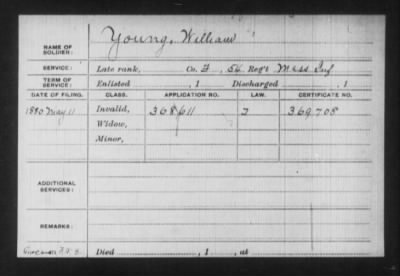 Young, William
NAME OF SOLDIER:
SERVICE: Late rank, Co. F, 54 Reg't Mass Inf
TERM OF SERVICE: Enlisted , 1 Discharged , 1
DATE OF FILING. CLASS. APPLICATION NO. LAW. CERTIFICATE NO.
1880 May 11 Invalid, 368611 369708
Widow,
Minor,
ADDITIONAL SERVICES:
REMARKS:
Died , 1 , at